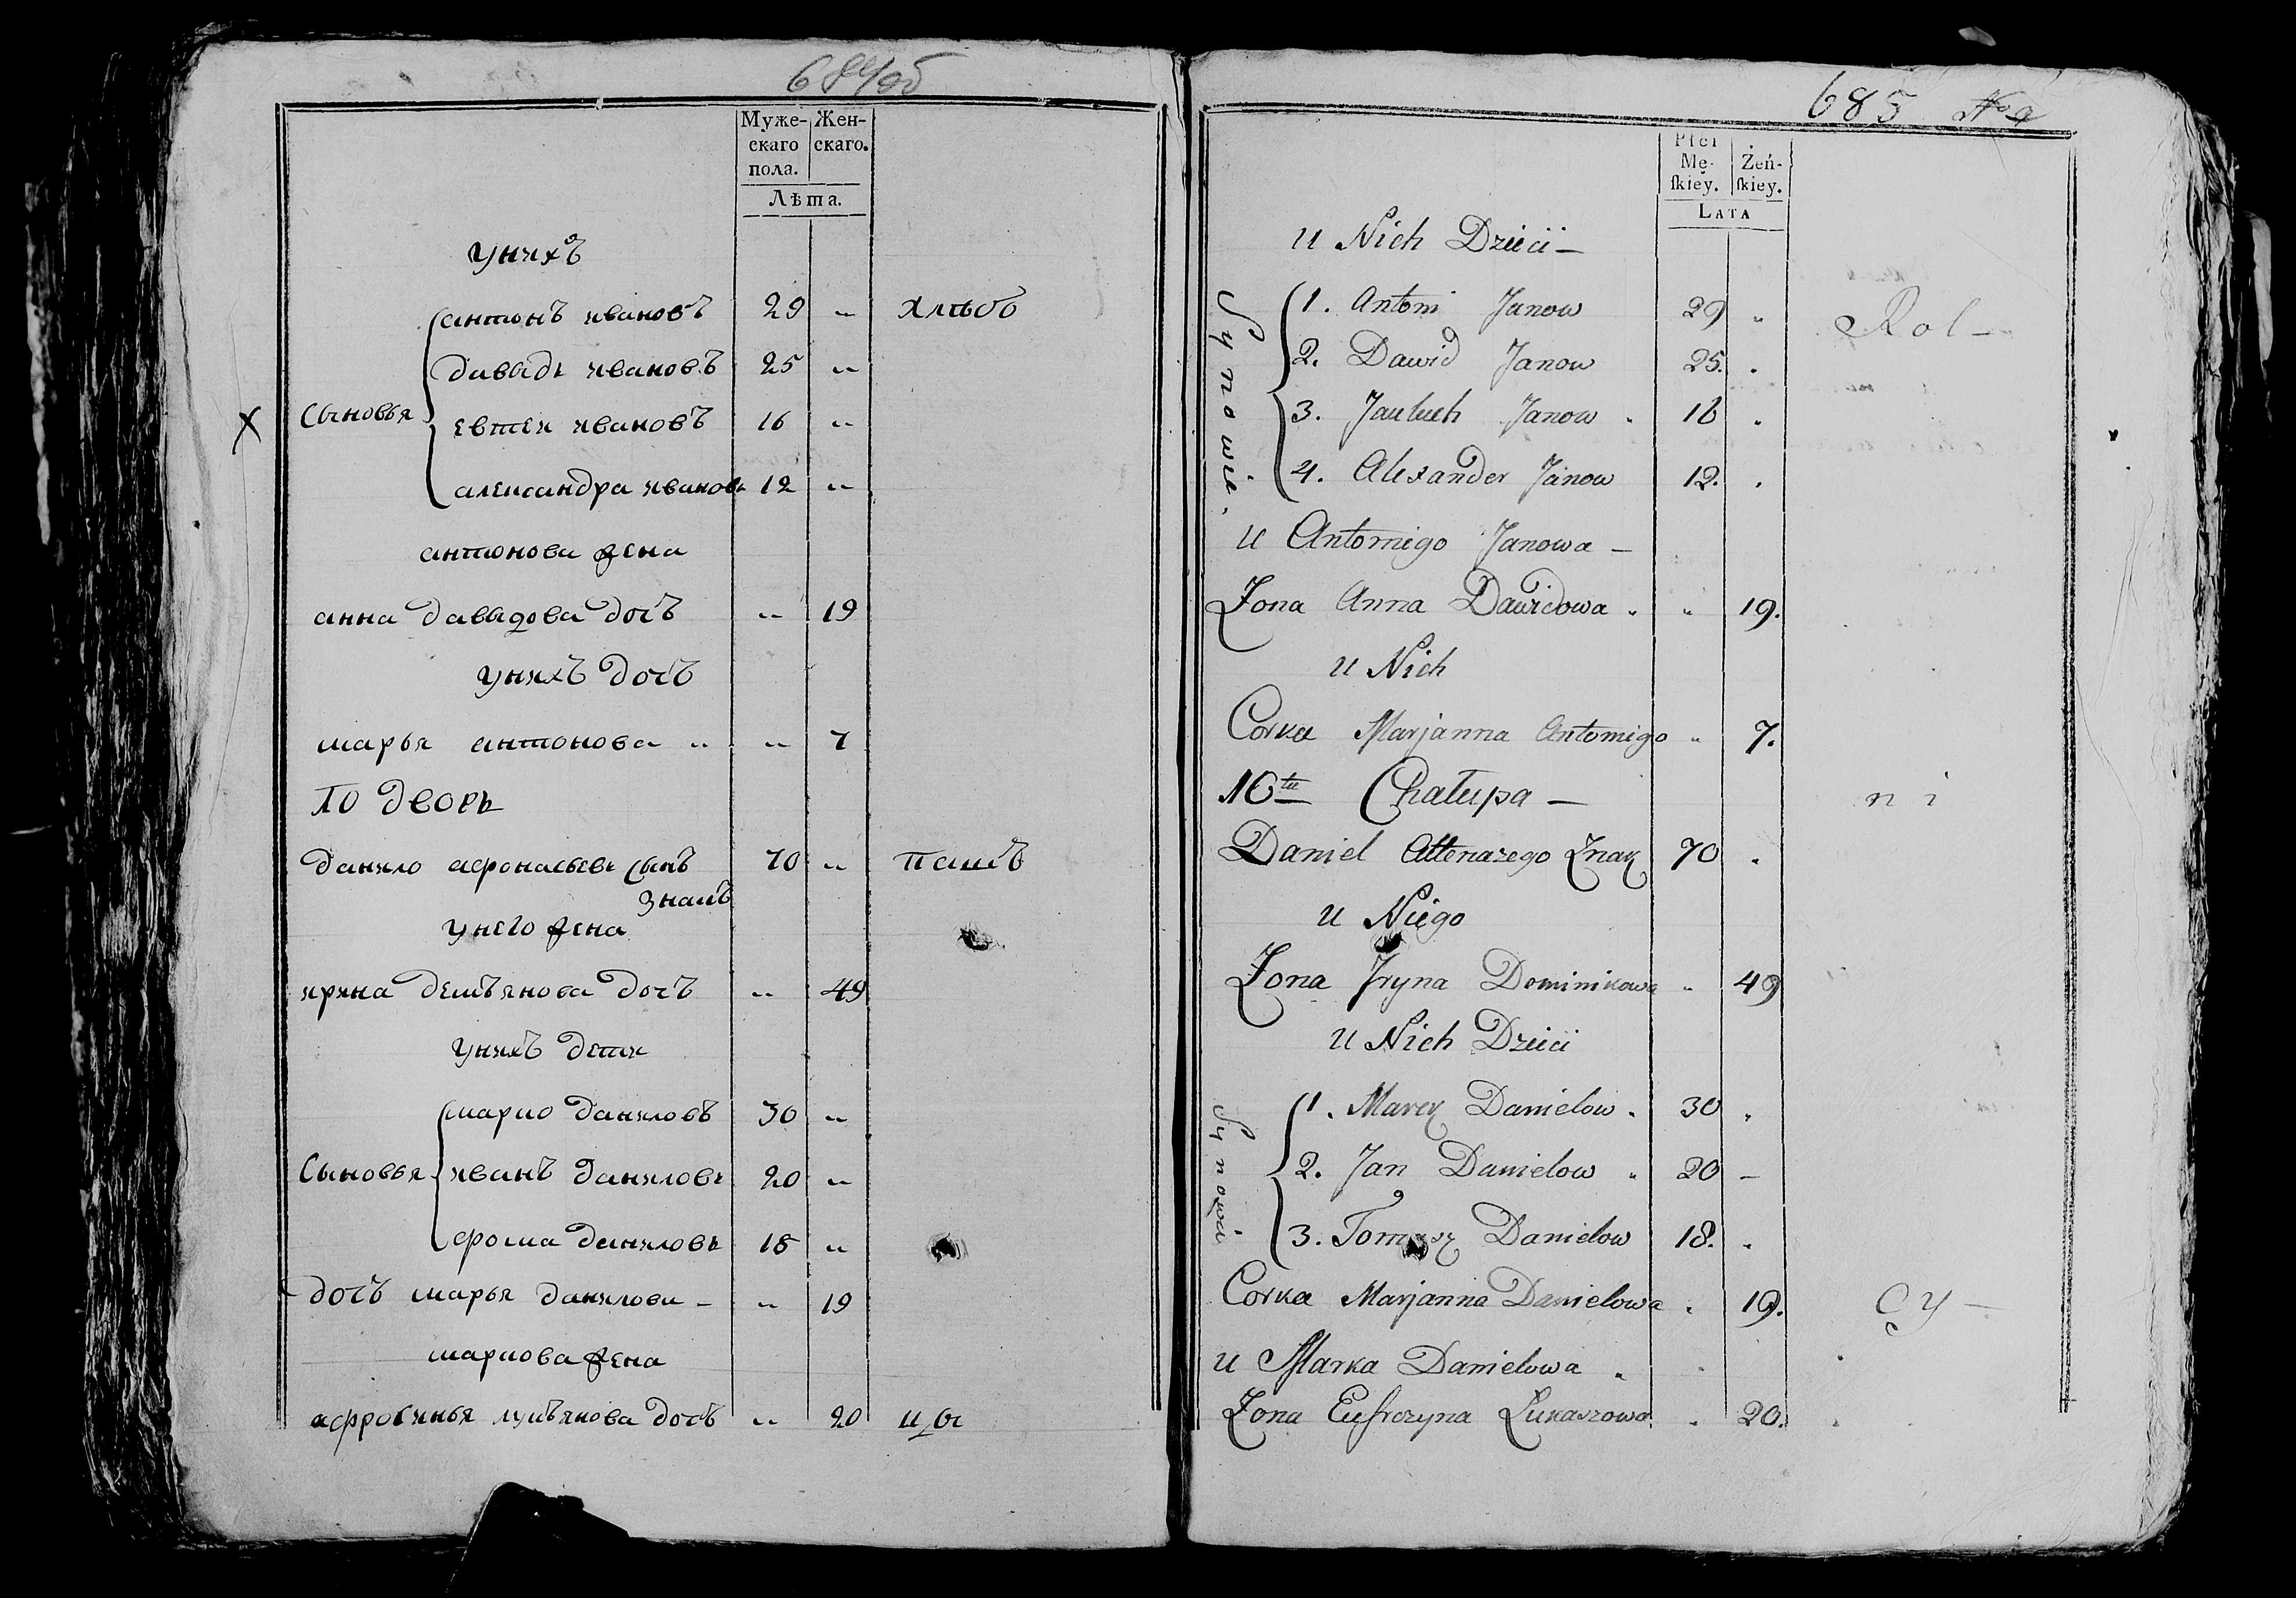 684об
Муже-
скаго
пола.
Жен-
скаго.
Лѣта.
унихъ
Сыновья
антонъ ивановъ 29 „ хлѣбо
давыдъ ивановъ 25 „
евтеи ивановъ 16 „
александра ивановъ 12 „
антонова жена
анна давыдова дочъ „ 19
унихъ дочъ
марья антонова „ „ 7
10 дворъ
данило афонасьевъ сынъ 70 „ паш
знакъ
унего жена
ирина демъянова дочъ „ 49
унихъ дети
Сыновья
марко даниловъ 30 „
иванъ даниловъ 20 „
фома даниловъ 18 „
дочъ марья данилова – „ 19
маркова жена
афросинья лукъянова дочъ „ 20 цы
685 №
Płci
Mę-
ſkiey.
Żeń-
ſkiey.
Lata
u Nich Dzieci –
Synowie.
1. Antoni Janow 29 „ Rol –
2. Dawid Janow 25. .
3. Janow . 16 .
4. Alexander Janow 12. .
u Antoniego Janowa –
Zona Anna Dawidowa . „ 19.
u Nich
Corka Marjanna Antoniego „ 7.
10ta Chałupa – n i
Daniel Attenazego Znak 70 .
u Niego
Zona Jryna Dominikowa „ 49
u Nich Dzieci
Synowie
1. Marek Danielow . 30 .
2. Jan Danielow . 20 –
3. Tomasz Danielow 18. .
Corka Marjanna Danielowa . 19. cy –
u Marka Danielowa .
Zona Eufrozyna Łukaszowa . 20.